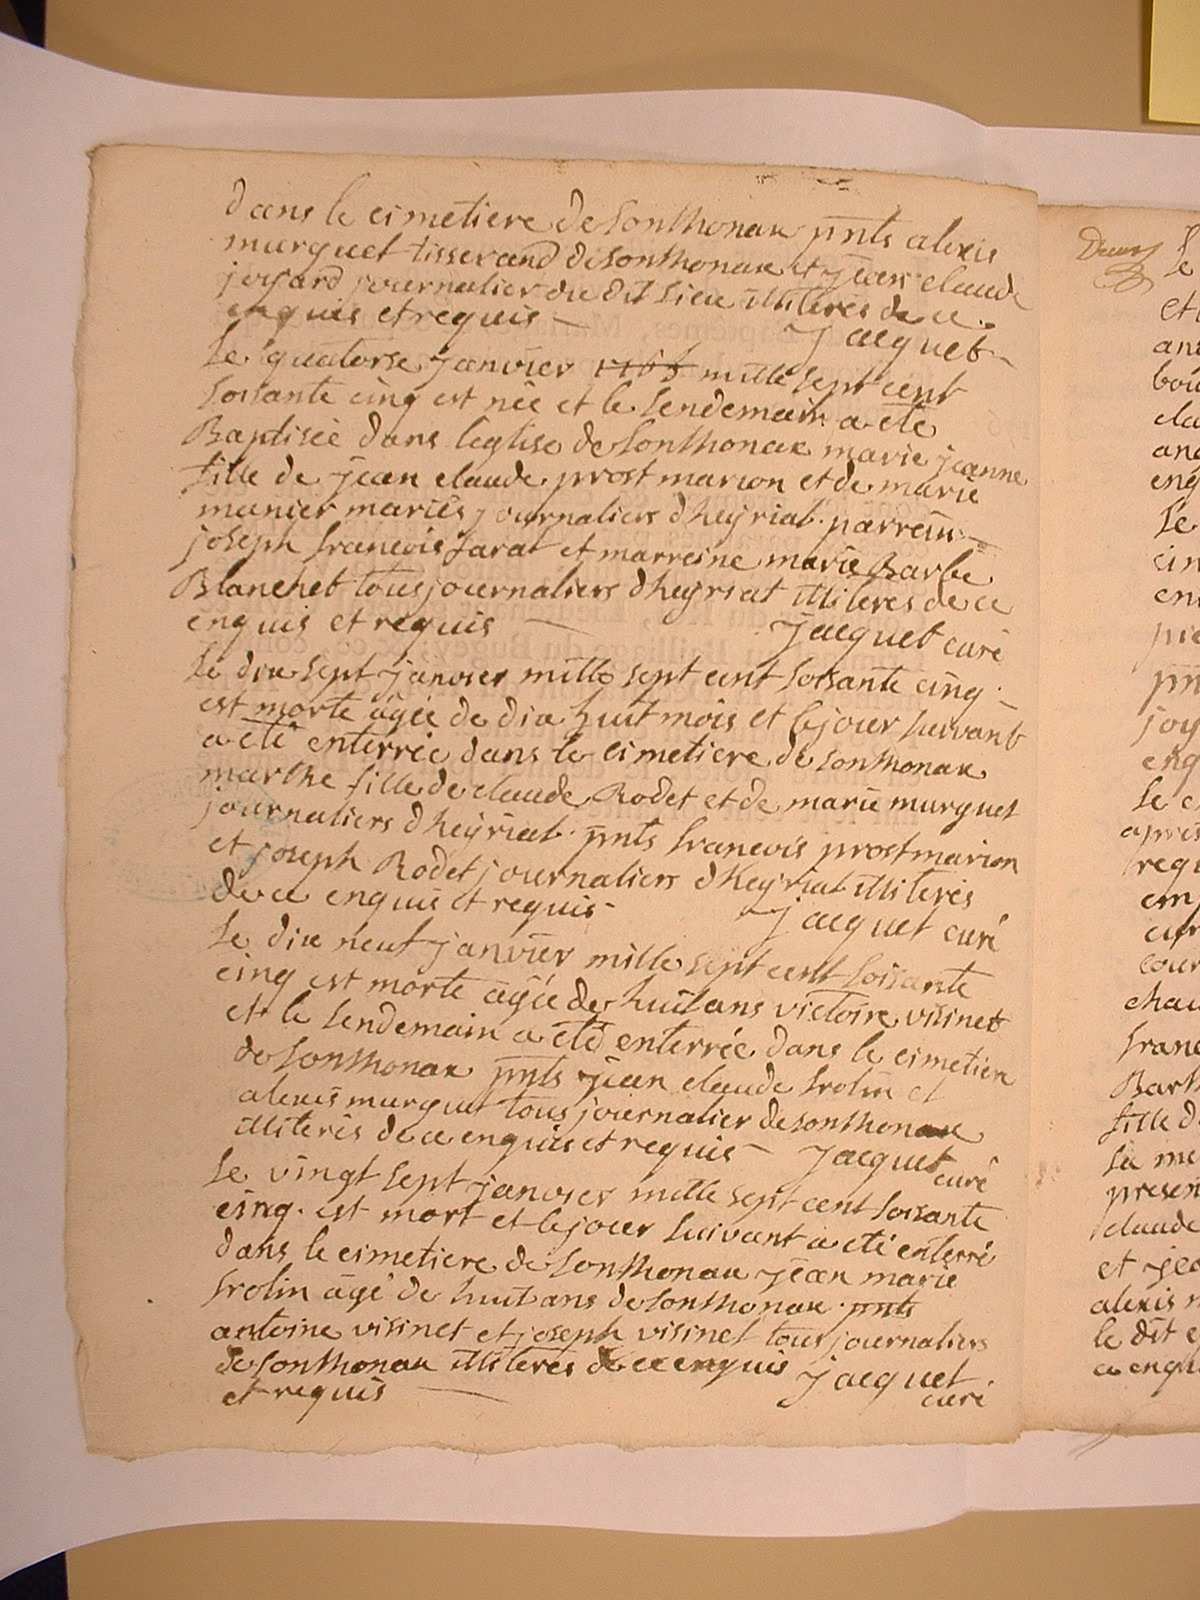 dans le cimetiere de Sonthonax pnts alexis
murquet tisserand de Sonthonax et jean claude
joyard journalier du dit lieu illiterés de ce
enquis et requis
Jacquet
Le quatorse janvier 1765 mille sept cent
soisante cinq est née et le lendemain a eté
Baptisée dans leglise de Sonthonax marie jeanne
fille de jean claude prost marion et de marie
munier mariés journaliers dheyriat parrein
joseph francois farat et marreine marie Barbe
Blanchet tous journaliers dheyriat illiteres de ce
enquis et requis
jacquet curé
Le dix sept janvier mille sept cent soisante cinq
est morte agée de dix huit mois et le jour suivant
a eté enterrée dans le cimetiere de Sonthonax
marthe fille de claude Rodet et de marie murquet
journaliers dheyriat pnts francois prost marion
et joseph Rodet journaliers dheyriat illiterés
de ce enquis et requis
jacquet curé
Le dix neuf janvier mille sept cent soisante
cinq est morte agée de huit ans victoire visinet
et le lendemain a eté enterrée dans le cimetiere
de Sonthonax pnts jean claude frolin et
alexis murquet tous journalier de sonthonax
illiterés de ce enquis et requis
Jacquet
curé
Le vingt sept janvier mille sept cent soisante
cinq est mort et le jour suivant a eté enterré
dans le cimetiere de Sonthonax jean marie
frolin agé de huit ans de Sonthonax pnts
antoine visinet et joseph visinet tous journaliers
de Sonthonax illiteres de ce enquis
et requis
jacquet
curé